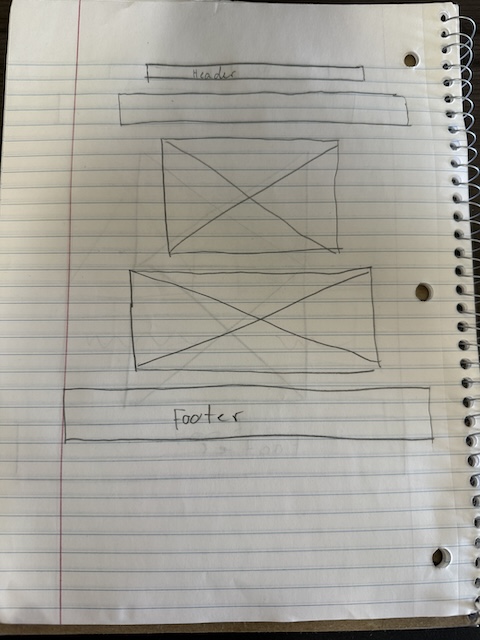 Header
Footer